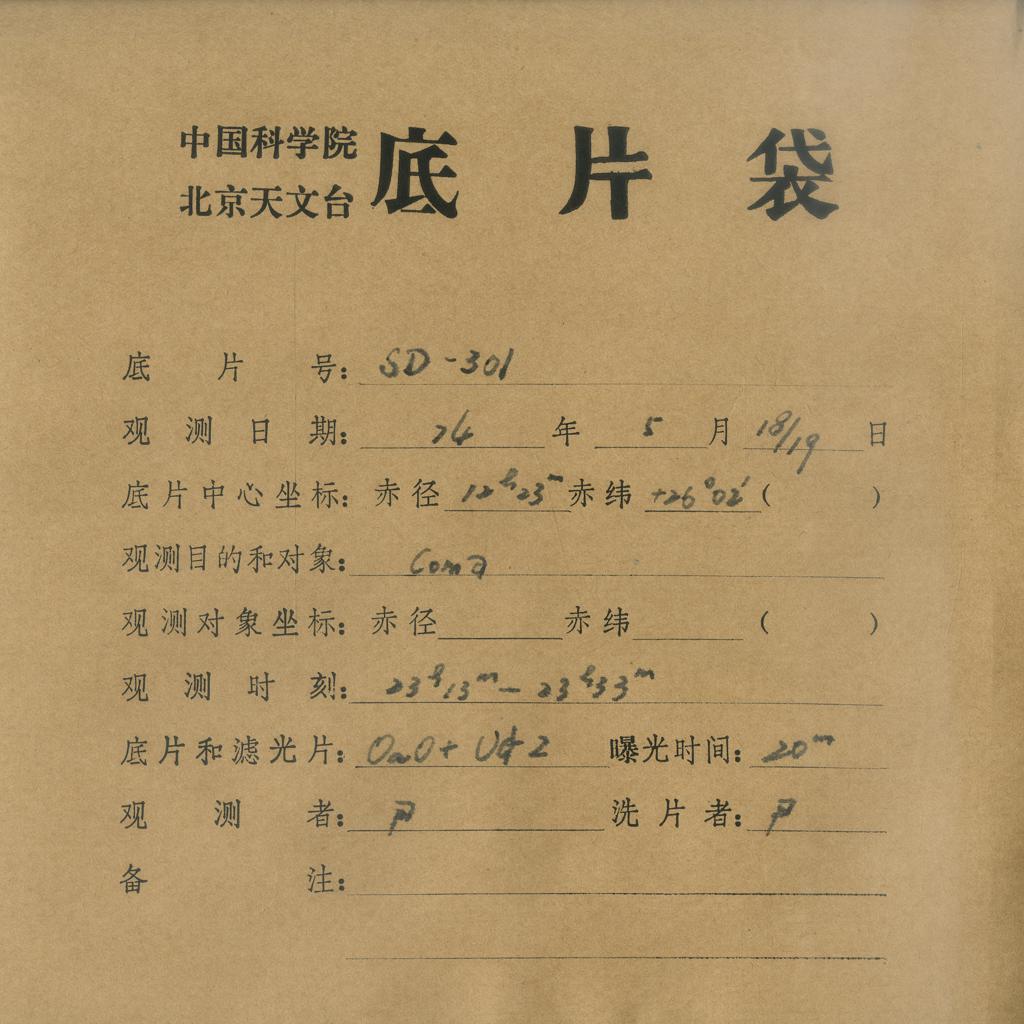 中国科学院
北京天文台
底片袋
底片号：SD-301
观测日期：74年5月18/19日
底片中心坐标：赤径12ʰ23ᵐ赤纬+26°02′（ ）
观测目的和对象：Coma
观测对象坐标：赤径 赤纬 （ ）
观测时刻：23ʰ13ᵐ-23ʰ33ᵐ
底片和滤光片：OaO+ 曝光时间：20ᵐ
观测者：尹 洗片者：尹
备注：